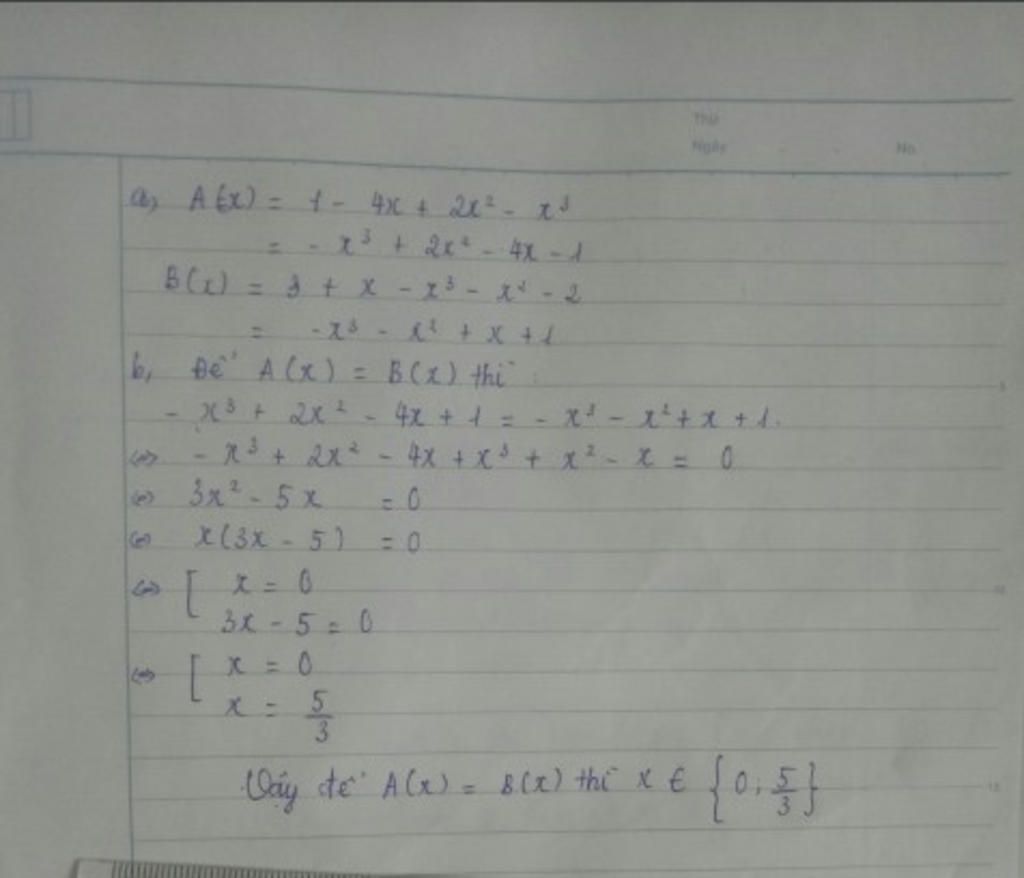 Thứ
Ngày No
a, A(x) = 1 - 4x + 2x² - x³
= - x³ + 2x² - 4x - 1
B(x) = 3 + x - x³ - x² - 2
= -x³ - x² + x + 1
b, Để A(x) = B(x) thì :
- x³ + 2x² - 4x + 1 = - x³ - x² + x + 1.
⇔ - x³ + 2x² - 4x + x³ + x² - x = 0
⇔ 3x² - 5x = 0
⇔ x(3x - 5) = 0
⇔ [ x = 0
3x - 5 = 0
⇔ [ x = 0
x = 5/3
Vậy để A(x) = B(x) thì x ∈ {0, 5/3}